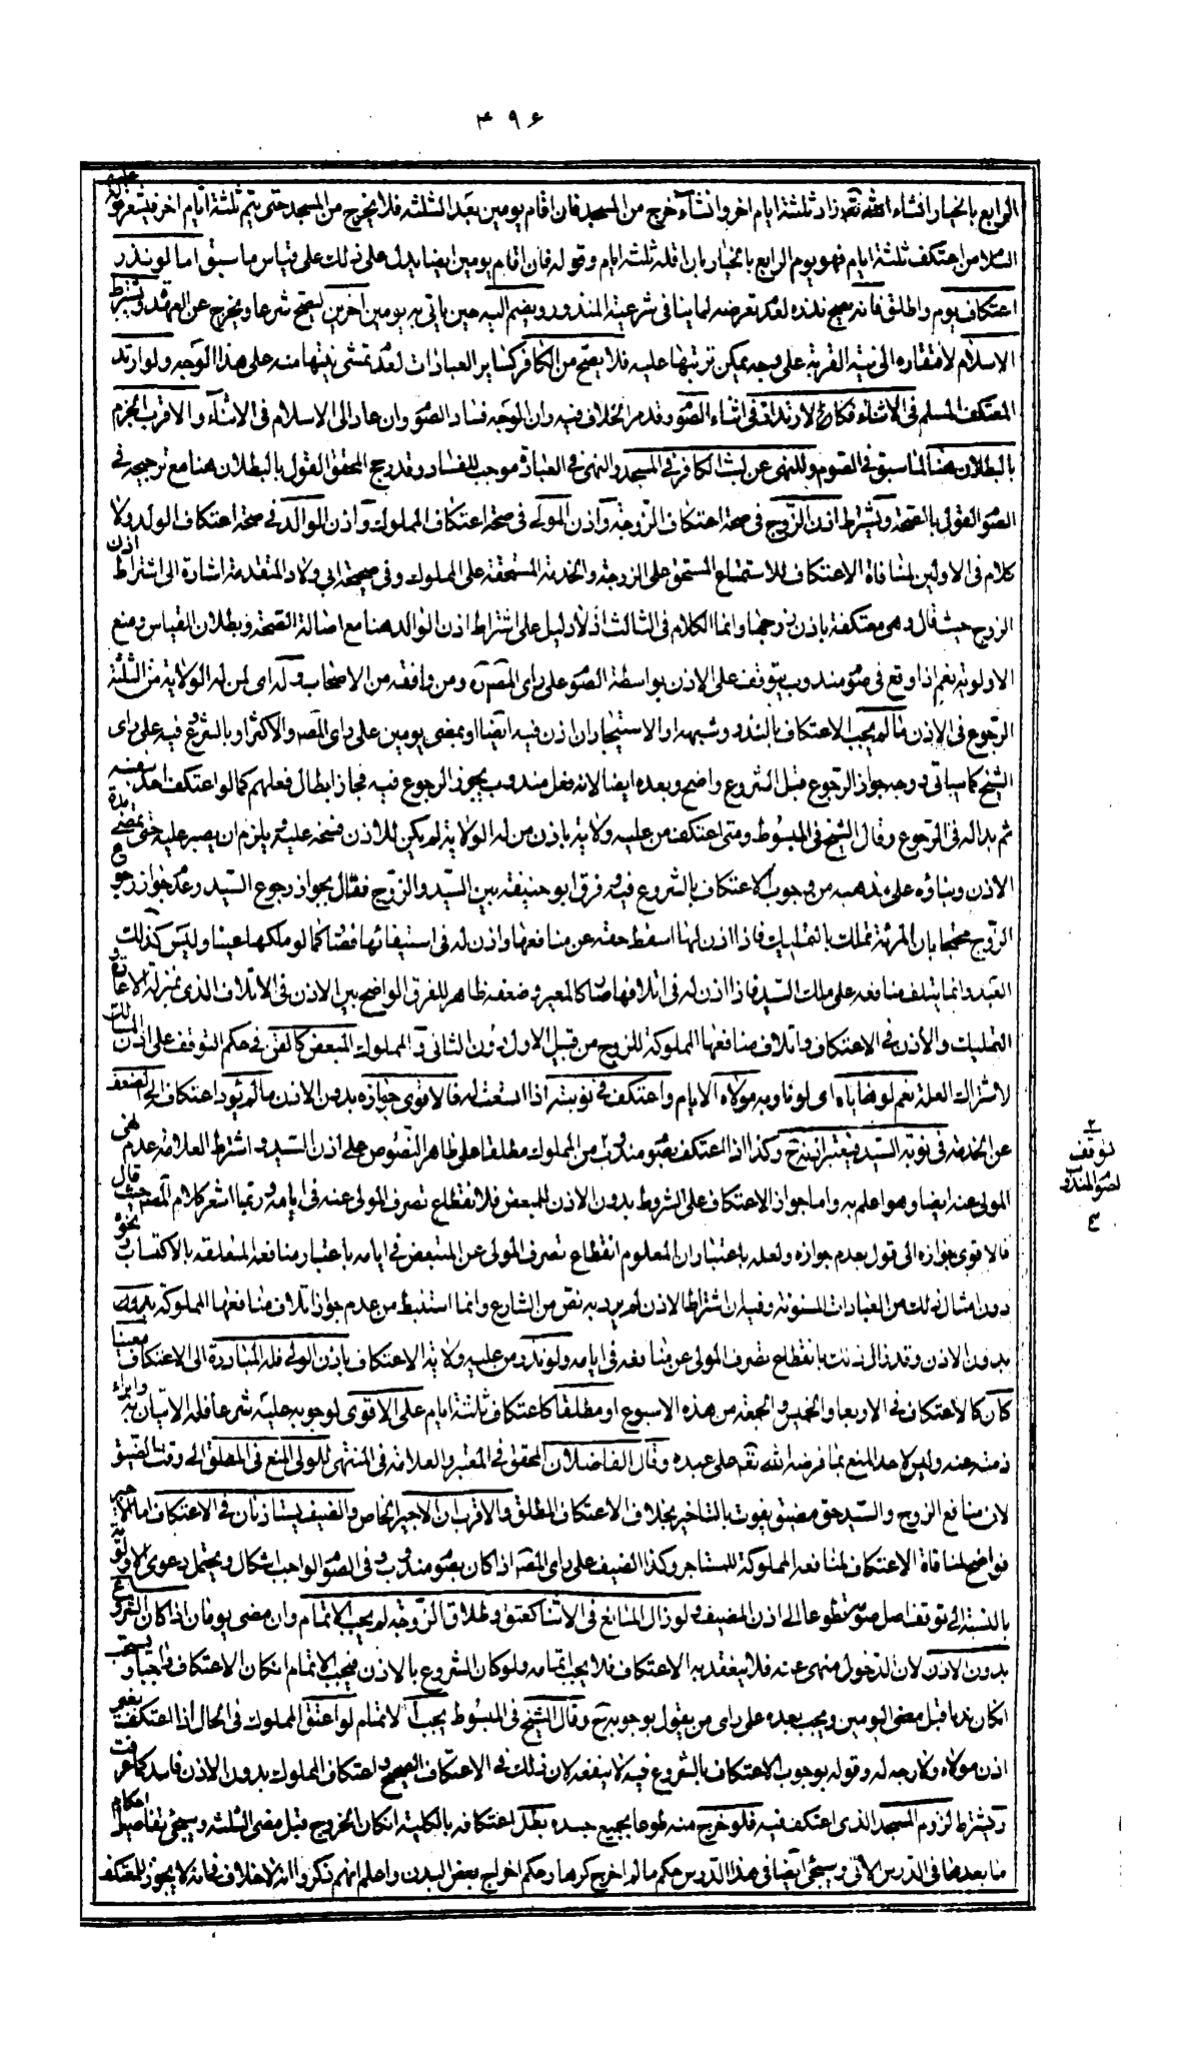 ۴۹۶
الرابع بالخيار ان شاء الله تعه زاد ثلثة ايام اخر وان شاء خرج من المسجد فان اقام يومين بعد الثلثه فلا يخرج من المسجد حتى يتم ثلثة ايام اخر فيشعر قوله عليه
السلام من اعتكف ثلثة ايام فهو يوم الرابع بالخيار بان اقله ثلثه ايام وقوله فان اقام يومين ايضا يدل على ذلك على قياس ما سبق اما لو نذر
اعتكاف يوم واطلق فانه يصح نذره لعدم تعرضه لما ينافى شرعية المنذور ويضم اليه حين ياتى به يومين اخرين ليصح شرعا ويخرج عن العهدة ويشترط
الاسلام لافتقاره الى نية القربة على وجه يمكن ترتبها عليه فلا يصح من الكافر كساير العبادات لعدم تمشى نيتها منه على هذا الوجه ولو ارتد
المعتكف المسلم فى الاثناء فكا لارتداد فى اثناء الصوم وقد مر الخلاف فيه وان الوجه فساد الصوم وان عاد الى الاسلام فى الاثناء والاقرب الجزم
بالبطلان هنا لما سبق فى الصوم وللنهى عن لبث الكافر فى المسجد والنهى فى العبادة موجب للفساد وقد رجح المحقق القول بالبطلان هنا مع ترجيحه فى
الصوم القول بالصحة ويشترط اذن الزوج فى صحة اعتكاف الزوجة واذن المولى فى صحة اعتكاف المملوك واذن الوالد فى صحة اعتكاف الولد ولا
كلام فى الاولين لمنافاة الاعتكاف للاستمتاع المستحق على الزوجة والخدمة المستحقة على المملوك وفى صحيحة ابى ولاد المتقدمة اشارة الى اشتراط اذن
الزوج حيث قال وهى معتكفة باذن زوجها وانما الكلام فى الثالث اذ لا دليل على اشتراط اذن الوالد هنا مع اصالة الصحة وبطلان القياس ومنع
الاولوية نعم اذا وقع فى صوم مندوب يتوقف على الاذن بواسطة الصوم على راى المصره ومن وافقه من الاصحاب وله اى لمن له الولاية من الثلثة
الرجوع فى الاذن ما لم يجب الاعتكاف بالنذر وشبهه او الاستيجار ان اذن فيه ايضا او بمضى يومين على راى المصه والاكثر او بالشروع فيه على راى
الشيخ كما سياتى ووجه جواز الرجوع قبل الشروع واضح وبعده ايضا لانه فعل مندوب يجوز الرجوع فيه فجاز ابطال فعلهم كما لو اعتكف هو بنفسه
ثم بدا له فى الرجوع وقال الشيخ فى المبسوط ومتى اعتكف من عليه ولاية باذن من له الولاية لم يكن للاذن فسخه عليه ويلزم ان يصبر عليه حتى يمضى مدة
الاذن وبناؤه على مذهبه من وجوب الاعتكاف بالشروع فيه وفرق ابو حنيفة بين السيد والزوج فقال بجواز رجوع السيد وعدم جواز رجوع
الزوج محتجا بان المرئة تملك بالتمليك فاذا اذن لها اسقط حقه عن منافعها واذن له فى استيفائها فصار كما لو ملكها عينا وليس كذلك
العبد وانما يتلف منافعه على ملك السيد فاذا اذن له فى اتلافها صار كالمعير وضعفه ظاهر للفرق الواضح بين الاذن فى الاتلاف الذى بمنزلة الاعارة و
التمليك والاذن فى الاعتكاف واتلاف منافعها المملوكة للزوج من قبيل الاول دون الثانى و المملوك المبعض كالقن فى حكم التوقف على اذن المالك
لاشتراك العلة نعم لو هاياه اى لو ناوبه مولاه الايام واعتكف فى نوبته اذا اتسعت له فالاقوى جوازه بدون الاذن ما لم يؤد اعتكافه الى الضعف
عن الخدمة فى نوبة السيد فيعتبر اذنه ح وكذا اذا اعتكف بصوم مندوب من المملوك مطلقا على ظاهر النصوص على اذن السيد واشترط العلامة عدم نهى
المولى عنه ايضا وهو اعلم به واما جواز الاعتكاف على الشروط بدون الاذن للمبعض فلانقطاع تصرف المولى عنه فى ايامه وربما اشعر كلام المصه حيث قال
فالاقوى جوازه الى قول بعدم جوازه ولعله باعتبار ان المعلوم انقطاع تصرف المولى عن المتبعض فى ايامه باعتبار منافعه المتعلقة بالاكتساب ونحوه
دون امثال ذلك من العبادات المسنونة وفيه ان اشتراط الاذن لم يرد به نص من الشارع وانما استنبط من عدم جواز اتلاف منافعها المملوكة بدون
بدون الاذن وقد زال ذلك بانقطاع تصرف المولى عن منافعه فى ايامه ولو نذر من عليه ولاية الاعتكاف باذن الولى فله المبادرة الى الاعتكاف معينا
كان كالاعتكاف فى الاربعا والخميس والجمعة من هذه الاسبوع او مطلقا كاعتكاف ثلثة ايام على الاقوى لوجوبه عليه شرعا فله الاتيان به وابراء
ذمته منه وليس لاحد المنع بما فرضه الله تعه على عبده وقال الفاضلان المحقق فى المعتبر والعلامة فى المنتهى للولى المنع فى المطلق الى وقت الضيق
لان منافع الزوج والسيد حق مضيق يفوت بالتاخير بخلاف الاعتكاف المطلق والاقرب ان الاجير الخاص والضيف يستاذنان فى الاعتكاف اما الاجير
فواضح لمنافاة الاعتكاف لمنافعه المملوكة للمستاجر وكذا الضيف على راى المصه اذا كان بصوم مندوب وفى الصوم الواجب اشكال ويحتمل دعوى الاولوية
بالنسبة الى توقف اصل صومه تطوعا الى اذن المضيف ولو زال المانع فى الاثناء كعتق وطلاق الزوجة لم يجب الاتمام وان مضى يومان اذا كان الشروع
بدون الاذن لان الدخول منهى عنه فلا ينعقد به الاعتكاف فلا يجب اتمامه ولو كان الشروع بالاذن فيجب الاتمام ان كان الاعتكاف واجبا ويستحب
ان كان ندبا قبل مضى اليومين ويجب بعده على راى من يقول بوجوبه ح وقال الشيخ فى المبسوط يجب الاتمام لو اعتق المملوك فى الحال اذا اعتكف بغير
اذن مولاه ولا وجه له وقوله بوجوب الاعتكاف بالشروع فيه لا ينفعه لان ذلك فى الاعتكاف الصحيح واعتكاف المملوك بدون الاذن فاسد كما عرفت
ويشترط لزوم المسجد الذى اعتكف فيه فلو خرج منه طوعا بجميع جسده بطل اعتكافه بالكلية ان كان الخروج قبل مضى الثلثة وسيجئ تفاصيل احكام
ما بعدها فى الدرس الاتى وسيجئ ايضا فى هذا الدرس حكم ما لو اخرج كرها وحكم اخراج بعض البدن واعلم انهم ذكروا انه لا خلاف فى انه لا يجوز للمعتكف
٢
توقف
لصوم المندوب
٣